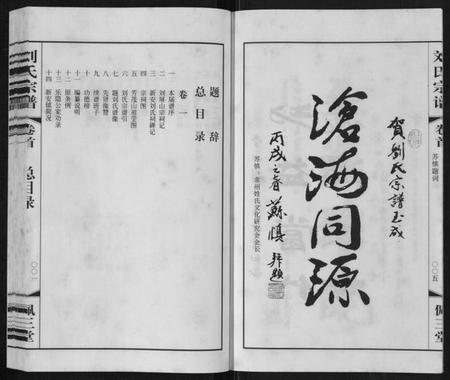 刘氏宗谱
卷首
苏慎题词
〇〇五
佩三堂
贺劉氏宗譜玉成
滄海同源
丙戌之春蘇慎拜題
苏慎：常州姓氏文化研究会会长
题辞
总目录
卷一
一 本届谱序
二 刘屏山宗祠记
三 新安刘氏祠碑记
四 宗祠图
五 芳茂山祖茔图
六 刘氏宗谱引
七 题刘氏谱像
八 先贤像赞
九 续谱班子
十 功德榜
十一 编纂说明
十二 原条例
十三 乐隐公家劝录
十四 新安镇概况
刘氏宗谱
卷首
总目录
佩三堂